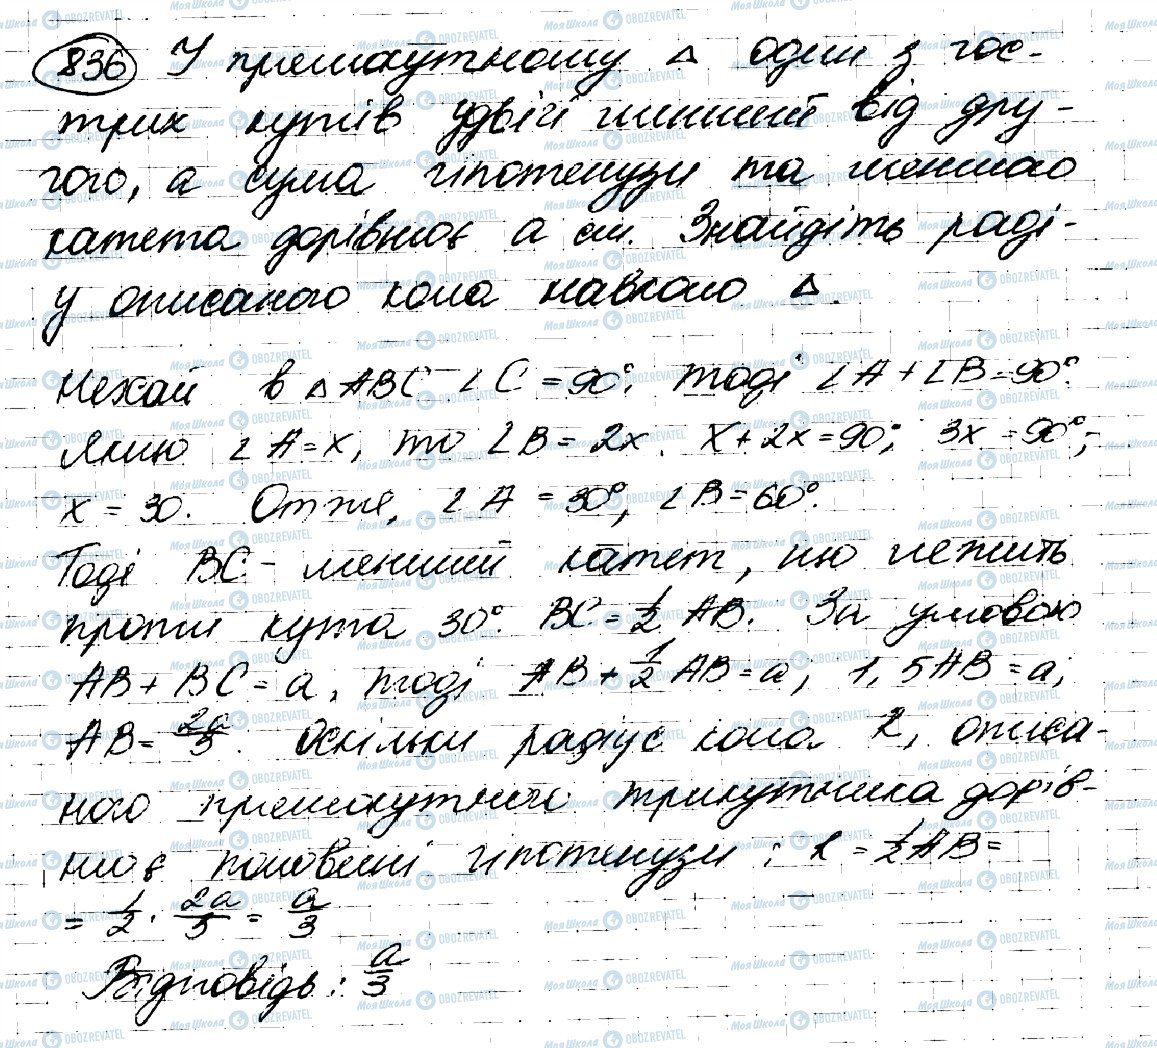 836 У прямокутному △ один з гос-
трих кутів удвічі менший від дру-
гого, а сума гіпотенузи та меншого
катета дорівнює a см. Знайдіть раді-
у описаного кола навколо △.
Нехай в △ABC ∠C = 90°, тоді ∠A + ∠B = 90°.
Якщо ∠A = x, то ∠B = 2x. x + 2x = 90°; 3x = 90°;
x = 30. Отже, ∠A = 30°, ∠B = 60°.
Тоді BC - менший катет, що лежить
проти кута 30°. BC = 1/2 AB. За умовою
AB + BC = a, тоді AB + 1/2 AB = a; 1,5AB = a;
AB = 2a/3. Оскільки радіус кола R, описа-
ного прямокутного трикутника дорів-
нює половині гіпотенузи: R = 1/2 AB =
= 1/2 · 2a/3 = a/3
Відповідь: a/3